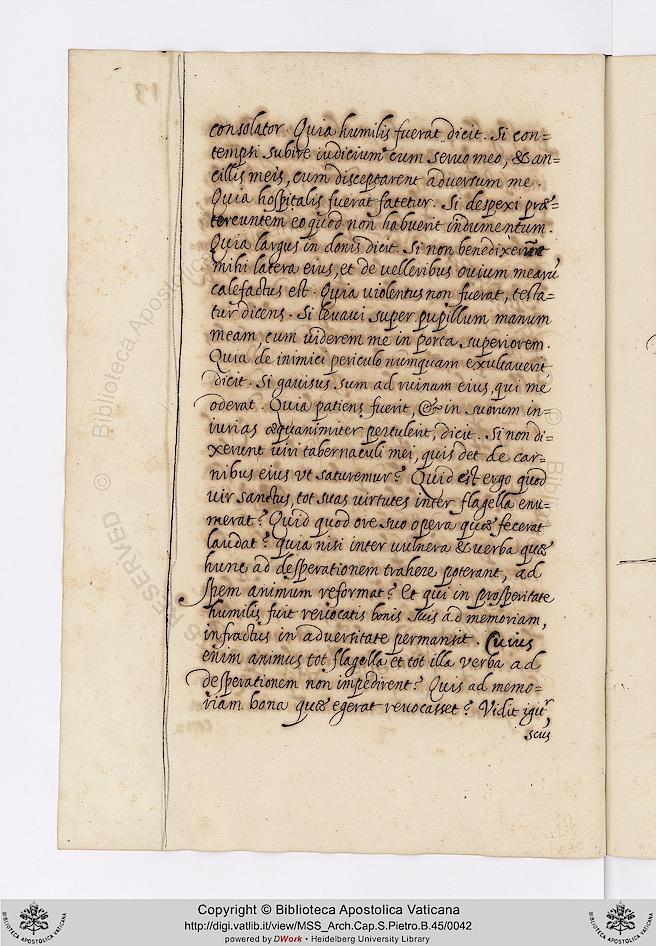 consolator. Quia humilis fuerat dicit. Si con=
tempsi subire iudicium cum seruo meo, & an=
cillis meis, cum disceptarent aduersum me.
Quia hospitalis fuerat fatetur. Si despexi præ=
tereuntem eo quod non habuerit indumentum.
Quia largus in donis dicit. Si non benedixerunt
mihi latera eius, et de velleribus ouium mearū
calefactus est. Quia violentus non fuerat, testa=
tur dicens. Si leuaui super pupillum manum
meam, cum viderem me in porta superiorem.
Quia de inimici periculo numquam exultauerit
dicit. Si gauisus sum ad ruinam eius, qui me
oderat. Quia patiens fuerit, & in suorum in=
iurias æquanimiter pertulerit, dicit. Si non di=
xerunt viri tabernaculi mei, quis det de car=
nibus eius vt saturemur? Quid est ergo quod
vir sanctus, tot suas virtutes inter flagella enu=
merat? Quid quod ore suo opera quæ fecerat
laudat? quia nisi inter vulnera & verba quæ
hunc ad desperationem trahere poterant, ad
spem animum reformat? Et qui in prosperitate
humilis fuit reuocatis bonis suis ad memoriam,
infractus in aduersitate permansit. Cuius
enim animus tot flagella et tot illa verba ad
desperationem non impedirent? Quis ad memo=
riam bona quæ egerat reuocasset? Vidit igit^r
scius
13
© Biblioteca Apostolica
RESERVED ©
© Bibl
Copyright © Biblioteca Apostolica Vaticana
http://digi.vatlib.it/view/MSS_Arch.Cap.S.Pietro.B.45/0042
powered by DWork • Heidelberg University Library